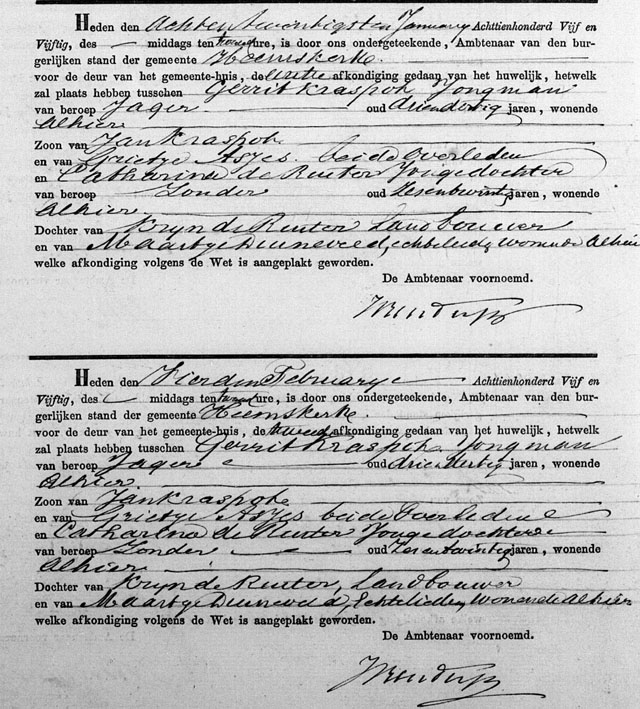 Heden den Achtentwentigsten January Achttienhonderd Vijf en
Vijftig, des — middags ten twaalf ure, is door ons ondergeteekende, Ambtenaar van den bur-
gerlijken stand der gemeente Heemskerk.
voor de deur van het gemeente-huis, de eerste afkondiging gedaan van het huwelijk, hetwelk
zal plaats hebben tusschen Gerrit Kraspoh Jongman
van beroep Jager oud drieendertig jaren, wonende
Alhier
Zoon van Jan Kraspoh
en van Grietje Asjes beide Overleden
en Catharina de Ruiter Jongedochter
van beroep Zonder oud Zesentwintig jaren, wonende
Alhier
Dochter van Kryn de Ruiter Landbouwer
en van Maartje Duineveld, echtelieden wonende Alhier
welke afkondiging volgens de Wet is aangeplakt geworden.
De Ambtenaar voornoemd.
Heden den Vierden February Achttienhonderd Vijf en
Vijftig, des middags ten twaalf ure, is door ons ondergeteekende, Ambtenaar van den bur-
gerlijken stand der gemeente Heemskerk.
voor de deur van het gemeente-huis, de tweede afkondiging gedaan van het huwelijk, hetwelk
zal plaats hebben tusschen Gerrit Kraspoh Jongman
van beroep Jager oud drieendertig jaren, wonende
Alhier
Zoon van Jan Kraspoh
en van Grietje Asjes beide Overleden
en Catharina de Ruiter Jongedochter
van beroep Zonder oud Zesentwintig jaren, wonende
Alhier
Dochter van Kryn de Ruiter, Landbouwer
en van Maartje Duineveld, Echtelieden wonende Alhier
welke afkondiging volgens de Wet is aangeplakt geworden.
De Ambtenaar voornoemd.